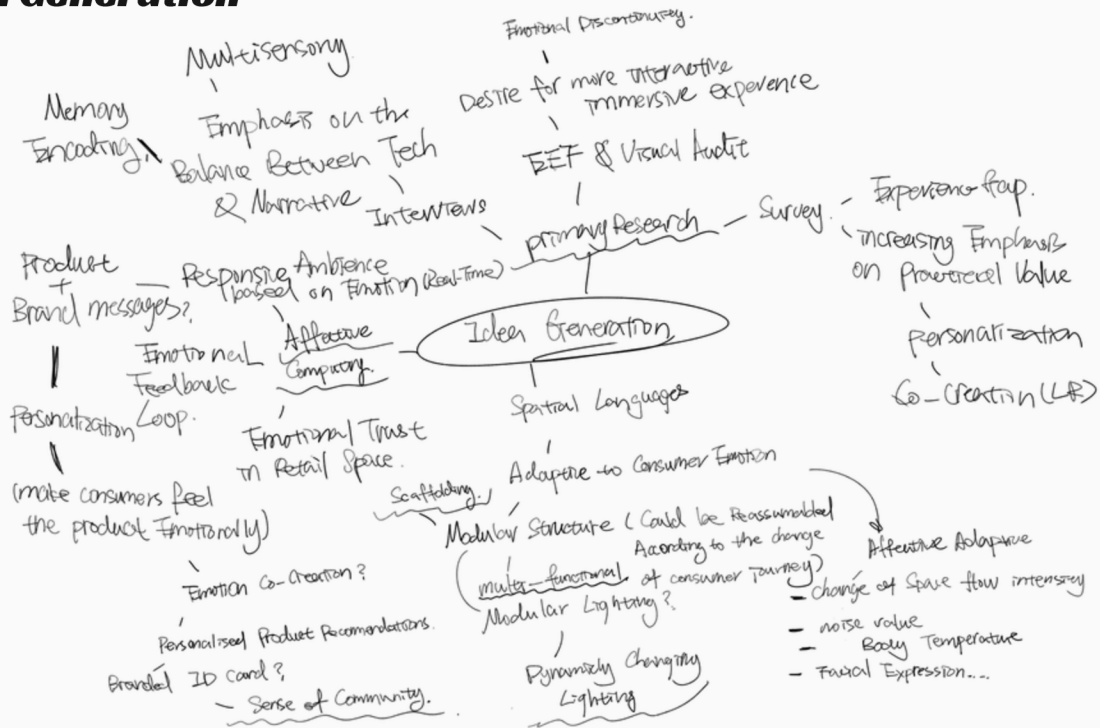 Generation
Emotional Discontinuity.
Multisensory
Desire for more interactive
immersive experence
Memory
Encoding
Emphasis on the
Balance Between Tech
& Narrative
EEF & Visual Audit
Interviews
primary Research
Survey.
Experience Gap.
increasing Emphasis
on Value
Personalization
Co-Creation (LB)
Product
+
Brand messages?
Responsive Ambience
(based on Emotion (Real-Time)
Idea Generation
Affective
Computing.
Emotional
Feedback
Loop.
Personalization
Emotional Trust
in Retail Space.
(make consumers feel
the product Emotionally)
Spatial Languages
Adaptive to Consumer Emotion
Scaffolding.
Modular Structure (Could be Reassumabled
According to the change
multi-functional of consumer journey)
Modular Lighting?
Dynamicly Changing
Lighting
Affective Adaptive
- change of Space flow intensity
- noise value
- Body Temperature
- Facial Expression...
Emotion Co-Creation?
Personalised Product Recomendations.
Branded ID card?
- Sense of Community.